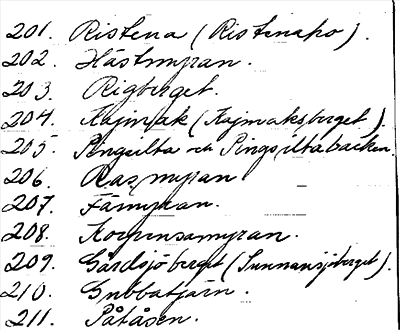 201. Ristena (Ristenaho).
202. Hästmyran.
203. Rigberget.
204. Kajmak (Kajmaksberget).
205. Pingsilta och Pingsiltabacken.
206. Rasmyran
207. Fämyran.
208. Korpinsamyran.
209. Gårdsjöberget (Sunnansjöberget).
210. Gubbatjärn.
211. Påtåsen.